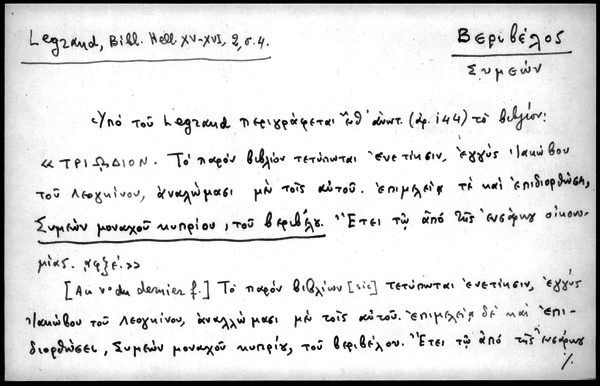 Legrand, Bibl. Hell. XV-XVI, 2, σ. 4.
Βεριβέλος
Συμεών
Ὑπό τοῦ Legrand περιγράφεται ἔνθ' ἀνωτ. (ἀρ. 144) τό βιβλίον:
«ΤΡΙῼΔΙΟΝ. Τό παρόν βιβλίον τετύπωται ἐνετίησιν, ἐγγύς Ἰακώβου
τοῦ Λεογκίνου, ἀναλώμασι μέν τοῖς αὐτοῦ. ἐπιμελείᾳ τέ καί ἐπιδιορθώσει,
Συμεών μοναχοῦ κυπρίου, τοῦ βεριβέλου. Ἔτει τῷ ἀπό τῆς ἐνσάρκου οἰκονο-
μίας. αφξέ.»
[Au v° du dernier f.] Τό παρόν βιβλίων [sic] τετύπωται ἐνετίησιν, ἐγγύς
Ἰακώβου τοῦ Λεογκίνου, ἀναλλώμασι μέν τοῖς αὐτοῦ. ἐπιμελείᾳ δέ καί ἐπι-
διορθώσει, Συμεών μοναχοῦ κυπρίου, τοῦ βεριβέλου. Ἔτει τῷ ἀπό τῆς ἐνσάρκου
%.